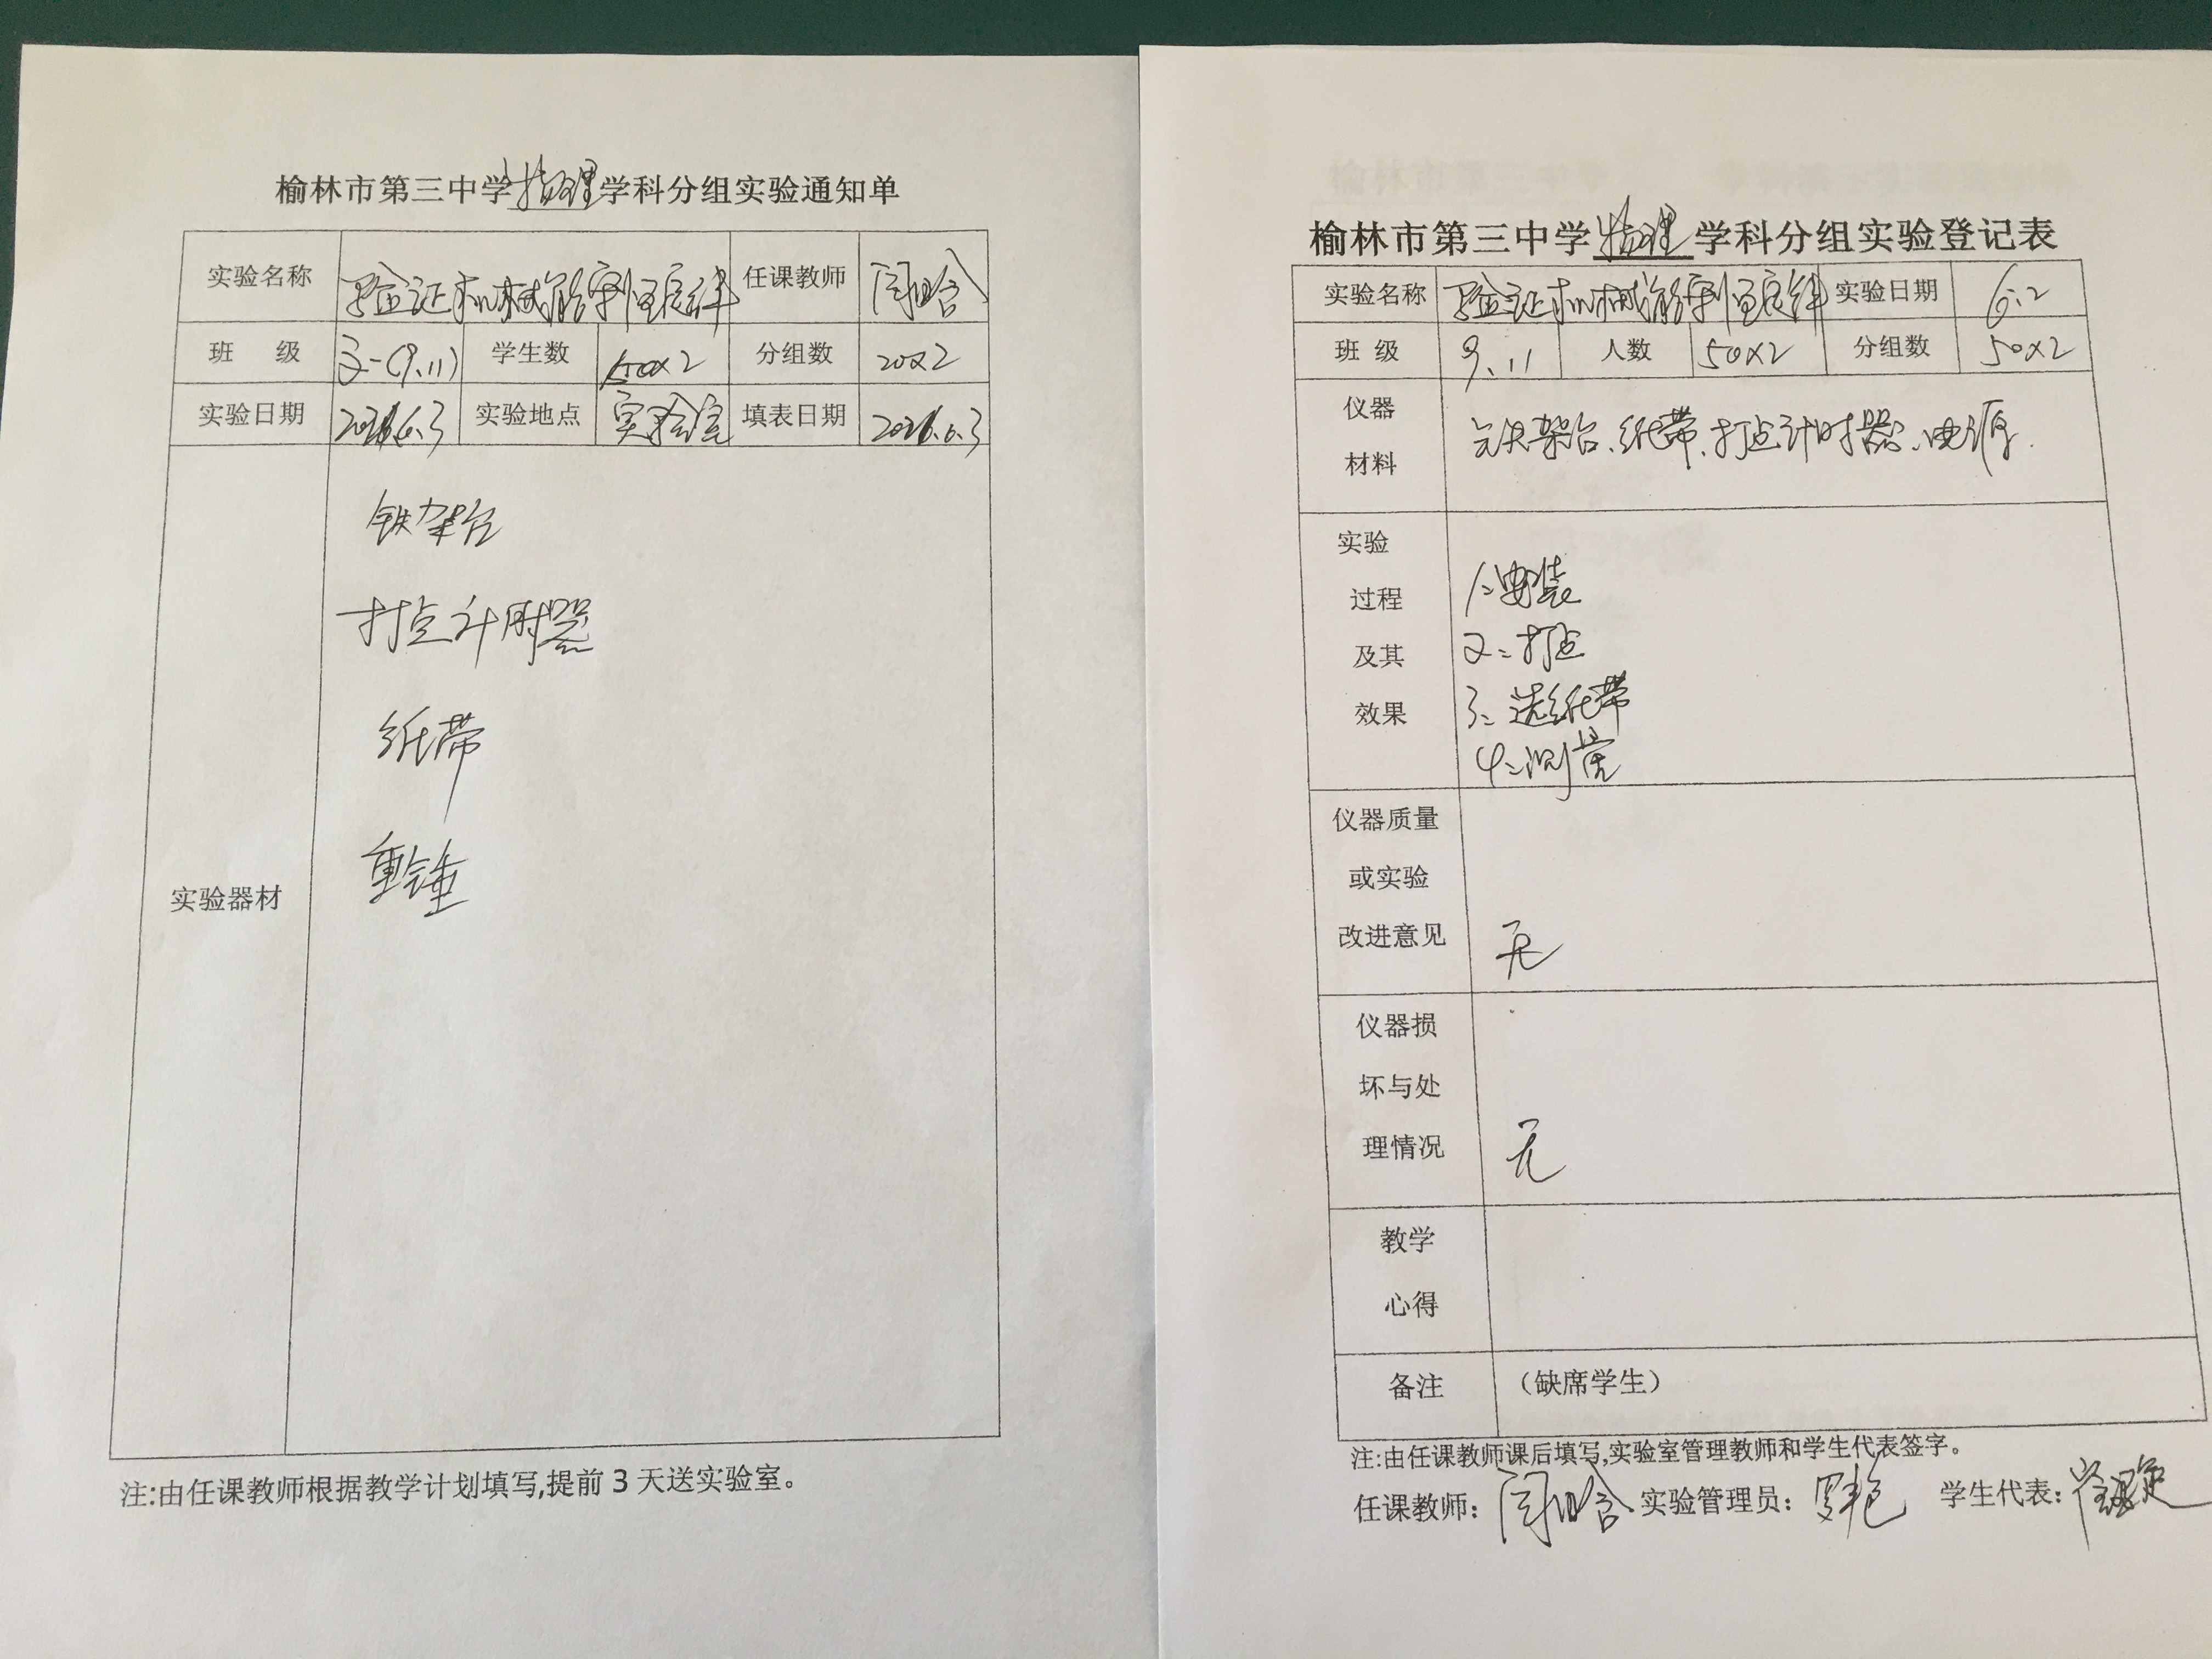 榆林市第三中学物理学科分组实验通知单
实验名称 验证机械能守恒定律 任课教师
班 级 高一(9.11) 学生数 50×2 分组数 20×2
实验日期 实验地点 实验室 填表日期
实验器材
铁架台
打点计时器
纸带
重锤
注:由任课教师根据教学计划填写,提前 3 天送实验室。
榆林市第三中学物理学科分组实验登记表
实验名称 验证机械能守恒定律 实验日期 6.2
班 级 9、11 人数 50×2 分组数 50×2
仪器
材料
铁架台、纸带、打点计时器、电源.
实验
过程
及其
效果
1、安装
2、打点
3、选纸带
4、测量
仪器质量
或实验
改进意见
无
仪器损
坏与处
理情况
无
教学
心得
备注 （缺席学生）
注:由任课教师课后填写,实验室管理教师和学生代表签字。
任课教师: 实验管理员: 学生代表: